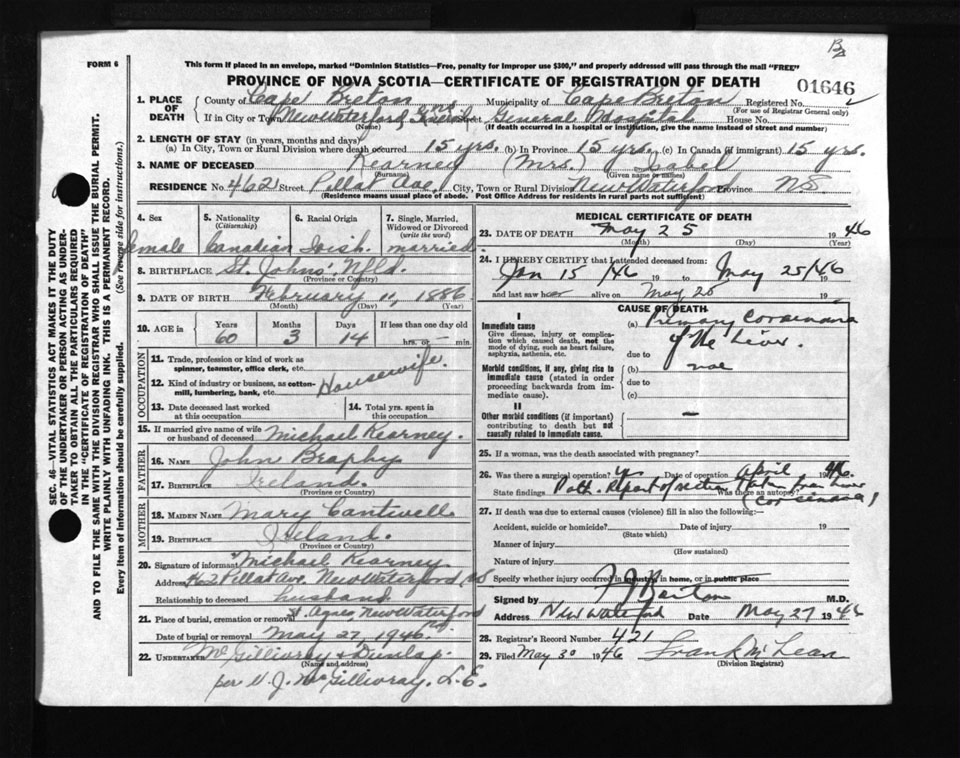 B
FORM 6
This form if placed in an envelope, marked "Dominion Statistics—Free, penalty for improper use $300," and properly addressed will pass through the mail "FREE"
PROVINCE OF NOVA SCOTIA—CERTIFICATE OF REGISTRATION OF DEATH
01646
1. PLACE OF DEATH
County of Cape Breton Municipality of Cape Breton Registered No.
(For use of Registrar General only)
If in City or Town New Waterford, N.S. Street General Hospital House No.
(Name) (If death occurred in a hospital or institution, give the name instead of street and number)
2. LENGTH OF STAY (in years, months and days)
(a) In City, Town or Rural Division where death occurred 15 yrs. (b) In Province 15 yrs. (c) In Canada (if immigrant) 15 yrs.
3. NAME OF DECEASED Kearney (Mrs.) Isabel
(Surname) (Given name or names)
RESIDENCE No. 462 Street Pitts Ave. City, Town or Rural Division New Waterford Province NS
(Residence means usual place of abode. Post Office Address for residents in rural parts not sufficient)
4. Sex
female
5. Nationality (Citizenship)
Canadian
6. Racial Origin
Irish
7. Single, Married, Widowed or Divorced (write the word)
married
8. BIRTHPLACE St. Johns' Nfld.
(Province or Country)
9. DATE OF BIRTH February 11, 1886
(Month) (Day) (Year)
10. AGE in Years Months Days If less than one day old
60 3 14 hrs. or — min.
OCCUPATION
11. Trade, profession or kind of work as spinner, teamster, office clerk, etc.
Housewife.
12. Kind of industry or business, as cotton-mill, lumbering, bank, etc.
13. Date deceased last worked at this occupation
14. Total yrs. spent in this occupation
15. If married give name of wife or husband of deceased Michael Kearney.
FATHER
16. NAME John Brophy
17. BIRTHPLACE Ireland.
(Province or Country)
MOTHER
18. MAIDEN NAME Mary Cantwell
19. BIRTHPLACE Ireland.
(Province or Country)
20. Signature of informant Michael Kearney.
Address 462 Ave. New Waterford, NS
Relationship to deceased husband
21. Place of burial, cremation or St. Agnes, New Waterford
Date of burial or removal May 27, 1946
22. UNDERTAKER McGillivray & Dunlap.
(Name and address)
per N. J. McGillivray, L.E.
MEDICAL CERTIFICATE OF DEATH
23. DATE OF DEATH May 25 1946
(Month) (Day) (Year)
24. I HEREBY CERTIFY that I attended deceased from:
Jan 15/46 19 to May 25/46
and last saw her alive on May 25 19
CAUSE OF DEATH
I
Immediate cause
Give disease, injury or complication which caused death, not the mode of dying, such as heart failure, asphyxia, asthenia, etc.
(a) Primary Carcinoma of the Liver.
due to
Morbid conditions, if any, giving rise to immediate cause (stated in order proceeding backwards from immediate cause).
(b)
due to
(c)
II
Other morbid conditions (if important) contributing to death but not causally related to immediate cause.
—
25. If a woman, was the death associated with pregnancy?
26. Was there a surgical operation? Yes Date of operation April 1946
State findings Path. Report of section taken from Liver
Was there an autopsy?
(carcinoma)
27. If death was due to external causes (violence) fill in also the following:—
Accident, suicide or homicide? Date of injury 19
(State which)
Manner of injury
(How sustained)
Nature of injury
Specify whether injury occurred in industry, in home, or in public place
Signed by M.D.
Address New Waterford Date May 27 1946
28. Registrar's Record Number 421
29. Filed May 30 1946 Frank McLean
(Division Registrar)
SEC. 46—VITAL STATISTICS ACT MAKES IT THE DUTY
OF THE UNDERTAKER OR PERSON ACTING AS UNDER-
TAKER TO OBTAIN ALL THE PARTICULARS REQUIRED
IN THE "CERTIFICATE OF REGISTRATION OF DEATH"
AND TO FILE THE SAME WITH THE DIVISION REGISTRAR WHO SHALL ISSUE THE BURIAL PERMIT.
WRITE PLAINLY WITH UNFADING INK. THIS IS A PERMANENT RECORD.
Every item of information should be carefully supplied. (See reverse side for instructions.)